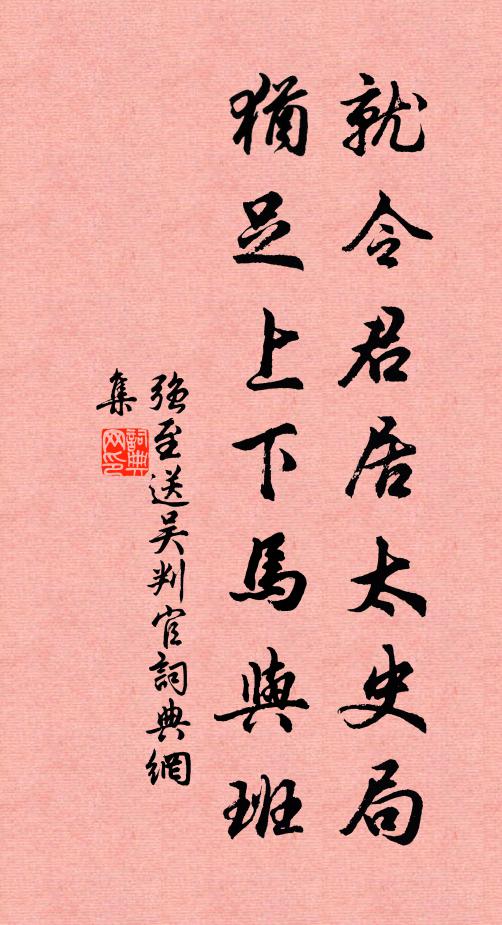 就令君居太史局
猶足上下馬與班
強至送吴判官詞典網
集
詞典
网印